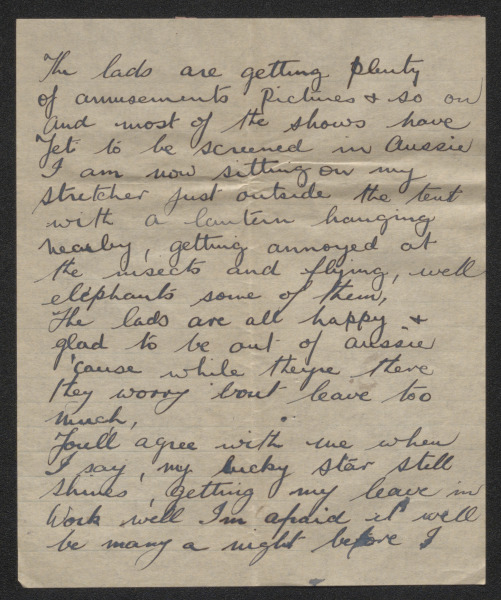 The lads are getting plenty
of amusements Pictures & so on
and most of the shows have
Yet to be screened in Aussie
I am now sitting on my
stretcher just outside the tent
with a lantern hanging
nearby, getting annoyed at
the insects and flying, well
elephants some of them,
The lads are all happy &
glad to be out of aussie
'cause while theyre there
they worry bout leave too
much,
Youll agree with me when
I say, my lucky star still
shines, getting my leave in
Work well I'm afraid it well
be many a night before I